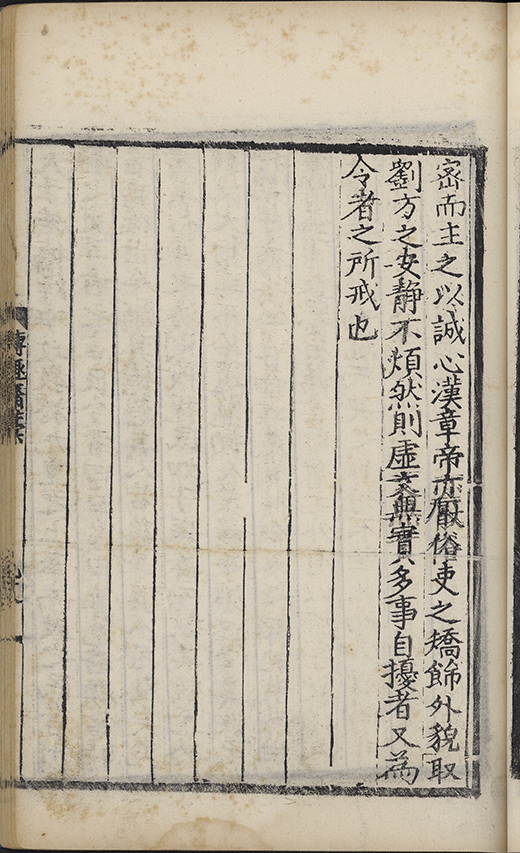 密而主之以誠心漢章帝亦厭俗吏之矯飾外貌取
劉方之安静不煩然則虛文無實多事自擾者又為
令者之所戒也